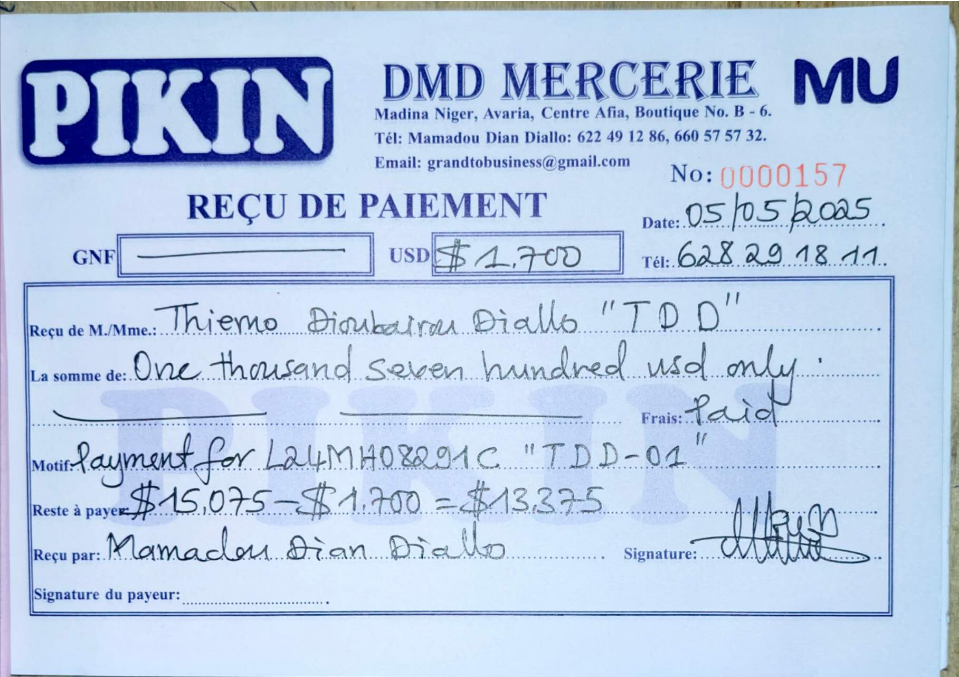 PIKIN
DMD MERCERIE
MU
Madina Niger, Avaria, Centre Afia, Boutique No. B - 6.
Tél: Mamadou Dian Diallo: 622 49 12 86, 660 57 57 32.
Email: grandtobusiness@gmail.com
No: 0000157
REÇU DE PAIEMENT
Date: 05/05/2025
GNF
USD $1.700
Tél: 628 29 18 11.
Reçu de M./Mme.: Thierno Dioubairou Diallo "TDD"
La somme de: One thousand seven hundred usd only.
Frais: Paid
Motif: Payment for L24MH08291C "TDD-01"
Reste à payer $15,075 - $1.700 = $13,375
Reçu par: Mamadou Dian Diallo
Signature:
Signature du payeur:
PIKIN